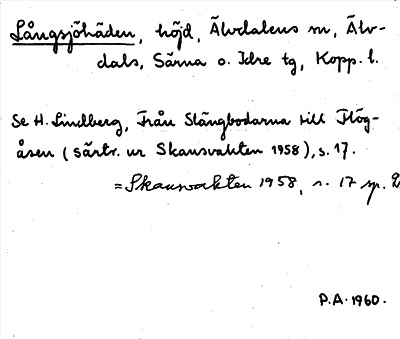 Långsjöhäden, höjd, Älvdalens sn, Älv-
dals, Särna o. Idre tg, Kopp. l.
Se H. Lindberg, Från Slängbodarna till Flög-
åsen (särtr. ur Skansvakten 1958), s. 17.
= Skansvakten 1958, s. 17 sp. 2
P.A. 1960.